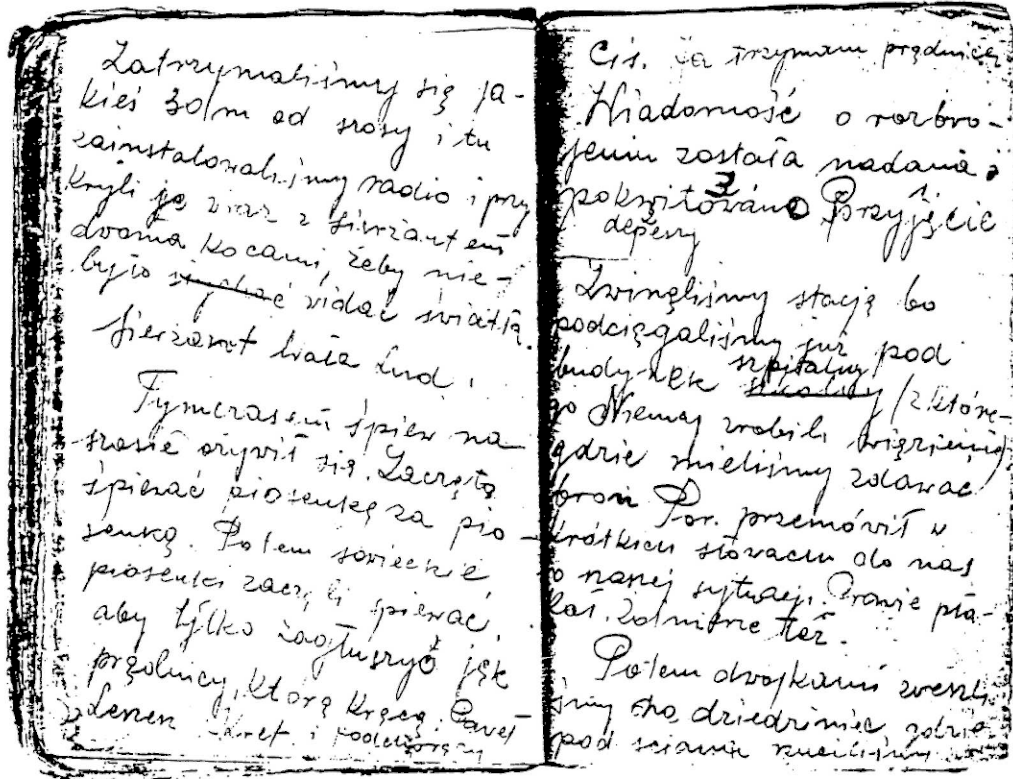 Zatrzymaliśmy się ja-
kieś 30 m od szosy i tu
zainstalowaliśmy radio i przy
kryli ją wraz z sierżantem
dwoma kocami, żeby nie-
było widać światła.
sierżant Lud.
Tymczasem śpiew na
szosie ożywił się. Zaczęto
śpiewać piosenkę za pio-
senką. Potem sowieckie
piosenki zaczęli śpiewać,
aby tylko zagłuszyć jęk
prądnicy, którą kręcą. Paweł
Leszek Kret i podchorąży
Cis. Ja trzymam prądnicę
Wiadomość o rozbro-
jeniu została nadana i
pokwitowano Przyjęcie
depeszy
Zwinęliśmy stację bo
podciągaliśmy już pod
budynek szpitalny szkolny (z które-
go Niemcy zrobili więzienie)
gdzie mieliśmy zdawać
broń Por. przemówił w
krótkich słowach do nas
o naszej sytuacji. Prawie pła-
kał. Żołnierze też.
Potem dwójkami weszli
śmy na dziedziniec gdzie
pod ścianą rzuciliśmy